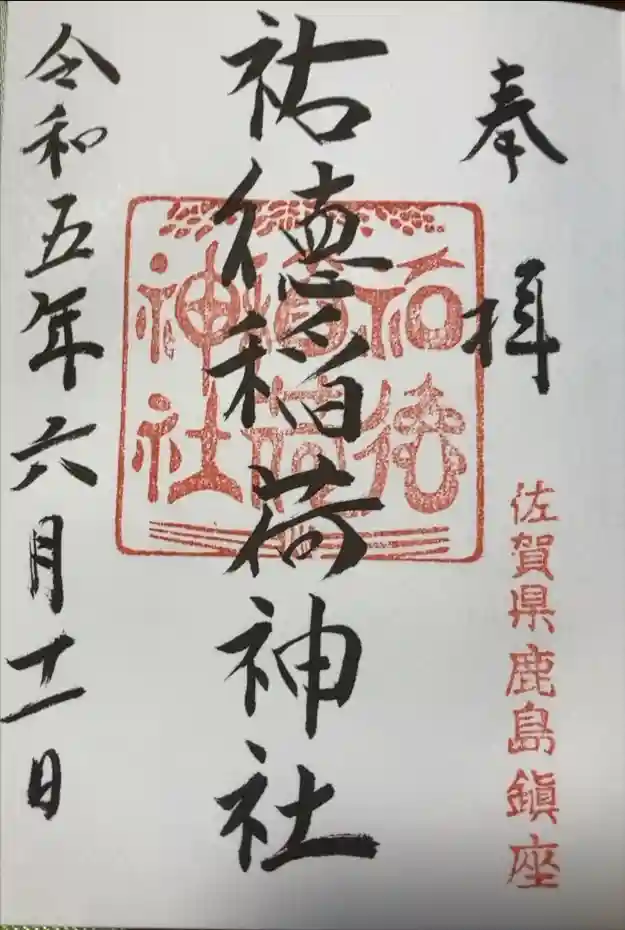 奉拝
佐賀県鹿島鎮座
祐徳稲荷神社
祐徳
稲荷
神社
令和五年六月十一日